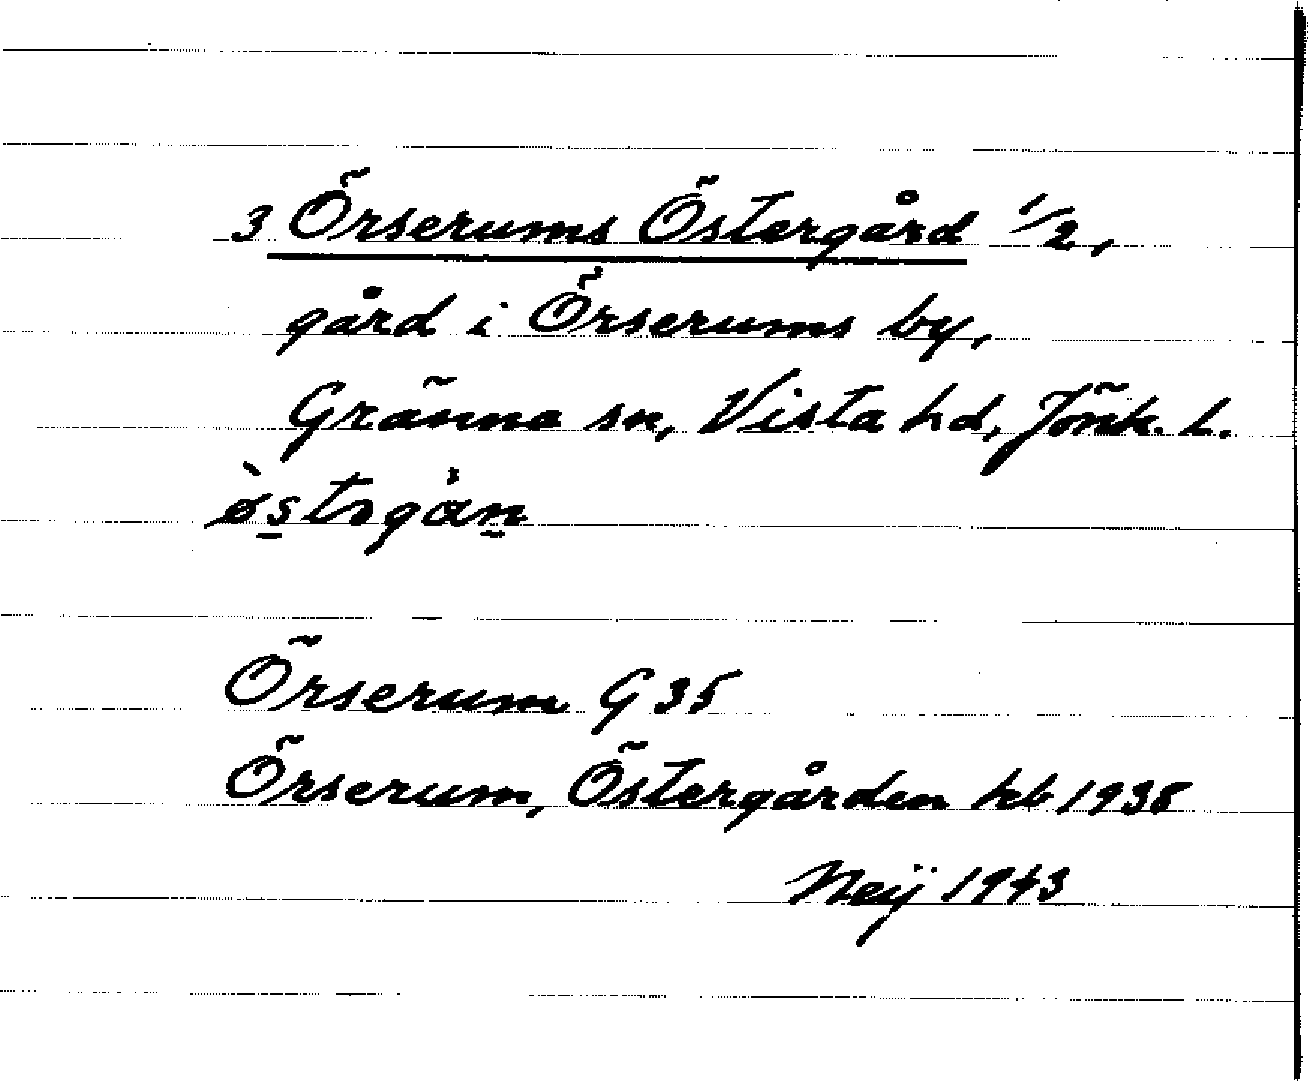 3 Örserums Östergård 1/2,
gård i Örserums by,
Gränna sn, Vista hd, Jönk. l.
Örserum G 35
Örserum, Östergården kb 1938
Neij 1943